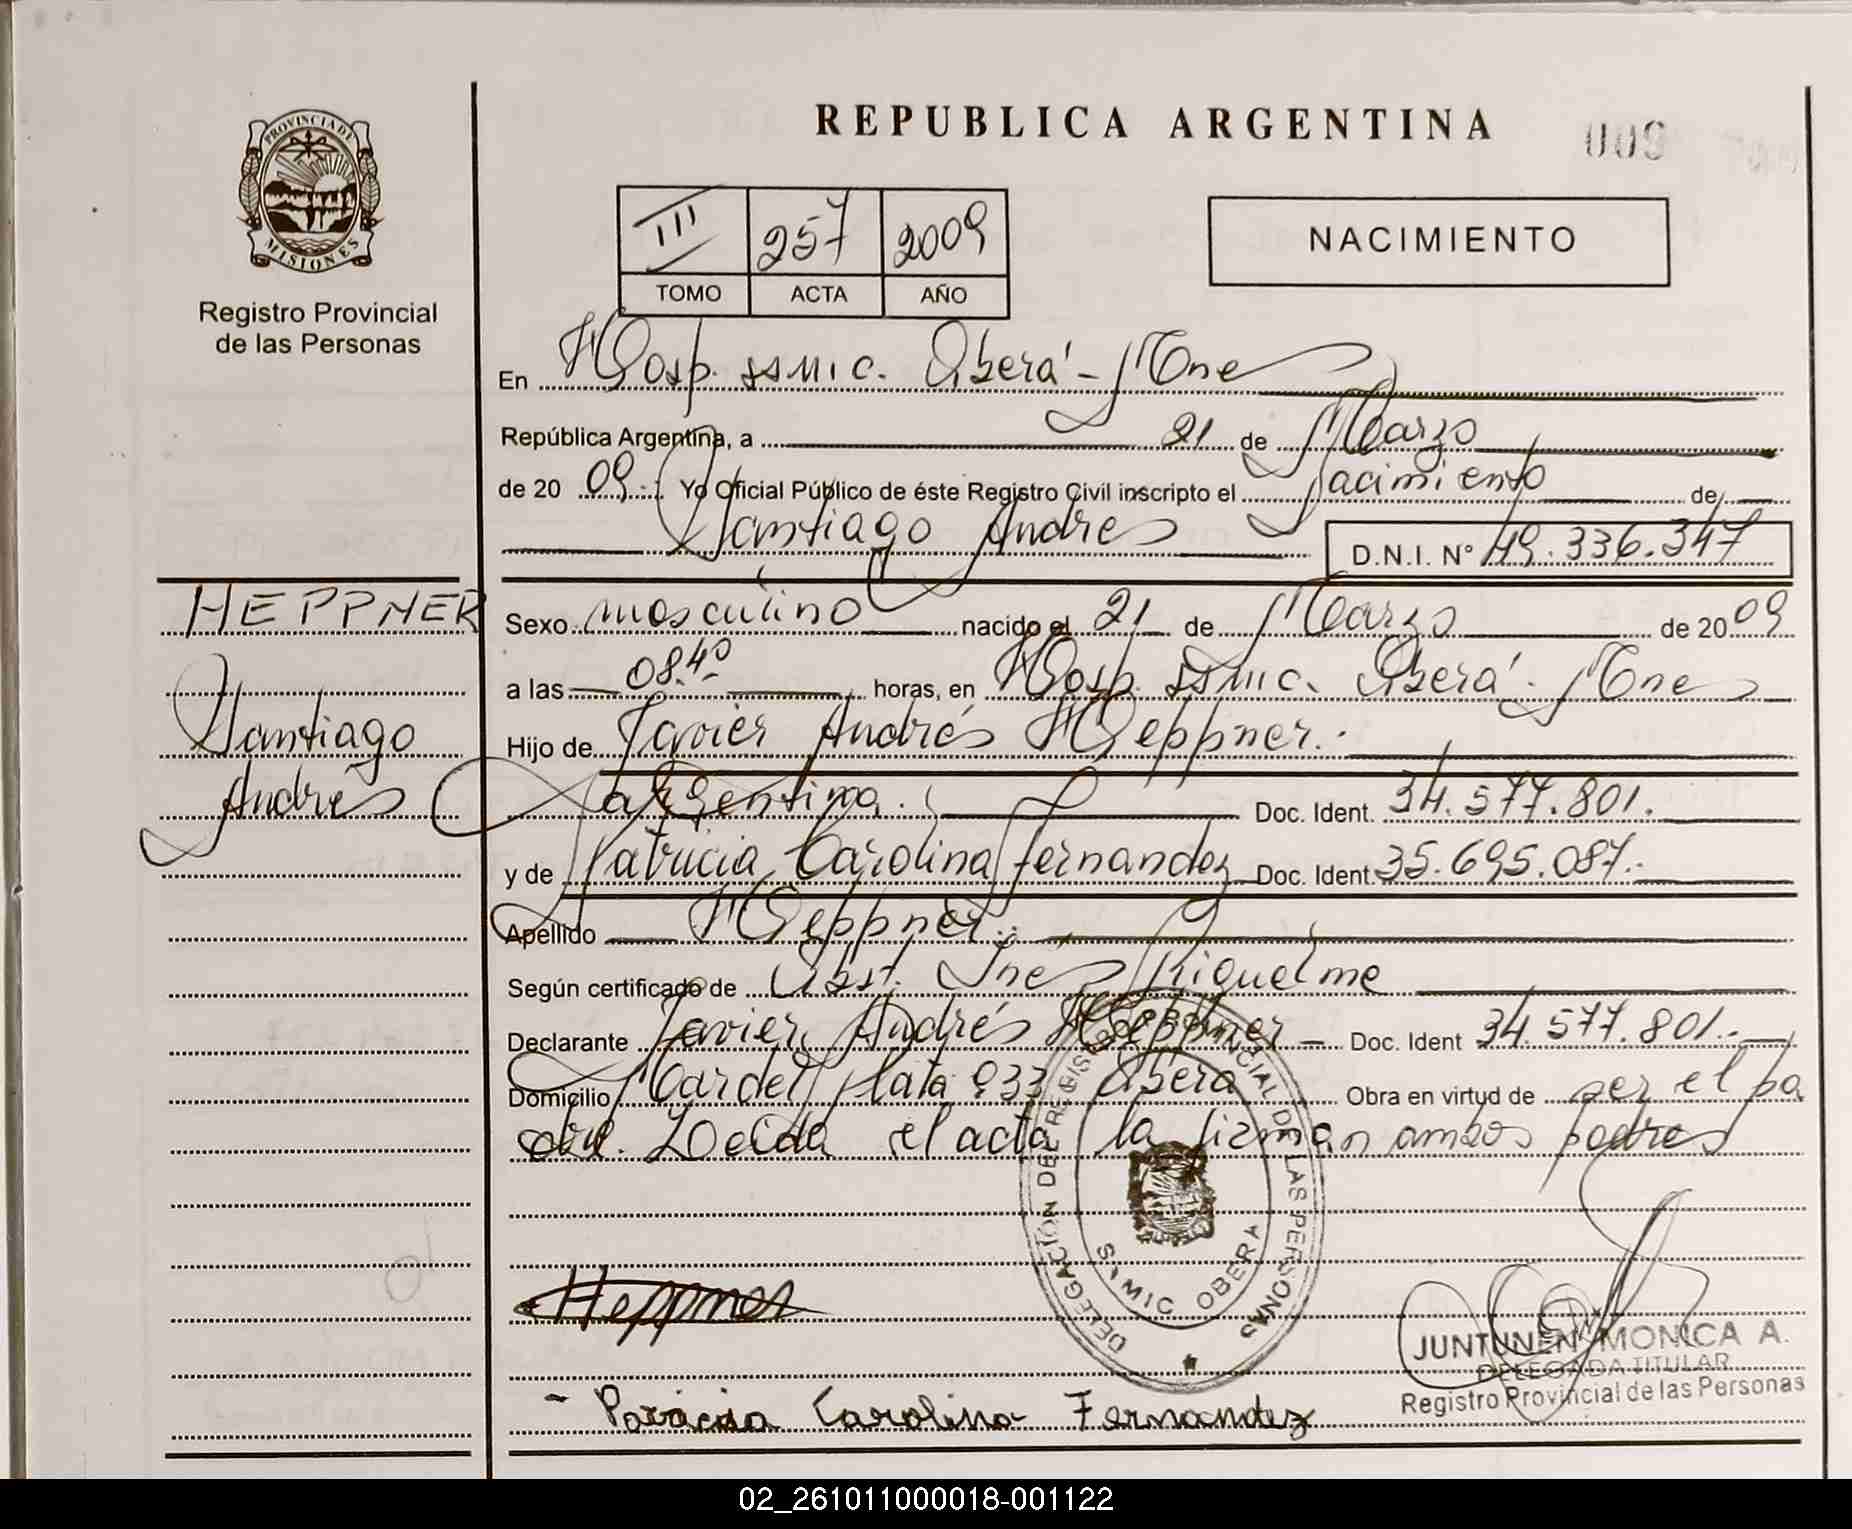 REPUBLICA ARGENTINA
009
PROVINCIA DE MISIONES
Registro Provincial
de las Personas
III 257 2009
TOMO ACTA AÑO
NACIMIENTO
En Hosp. SAMIC. Oberá - Mnes
República Argentina, a 21 de Marzo
de 20 09. Yo Oficial Público de éste Registro Civil inscripto el Nacimiento de
Santiago Andres D.N.I. N° 49.336.347
HEPPNER
Santiago
Andrés
Sexo masculino nacido el 21 de Marzo de 20 09
a las 08.40 horas, en Hosp. SAMIC. Oberá - Mnes
Hijo de Javier Andrés Heppner.
argentina. Doc. Ident. 34.577.801.
y de Patricia Carolina Fernandez Doc. Ident. 35.695.087.
Apellido Heppner.
Según certificado de Obst. Inés Riquelme
Declarante Javier Andrés Heppner Doc. Ident 34.577.801.
Domicilio Mar del Plata 933 Oberá Obra en virtud de ser el pa
dre. Leída el acta la firman ambos padres
DELEGACIÓN DEL REGISTRO PROVINCIAL DE LAS PERSONAS
SAMIC OBERA
Heppner
JUNTUNEN MONICA A.
DELEGADA TITULAR
Registro Provincial de las Personas
- Patricia Carolina Fernandez
02_261011000018-001122